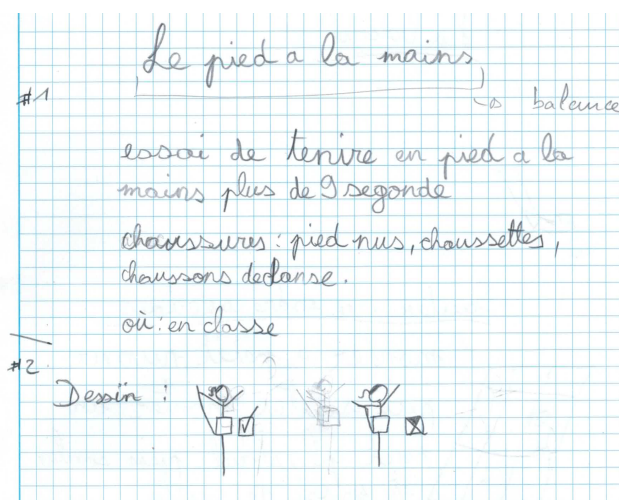 Le pied a la mains
#1
balance
essai de tenire en pied a la
mains plus de 9 segonde
chaussures : pied nus, choussettes,
chaussons dedanse.
où : en classe
#2
Dessin :